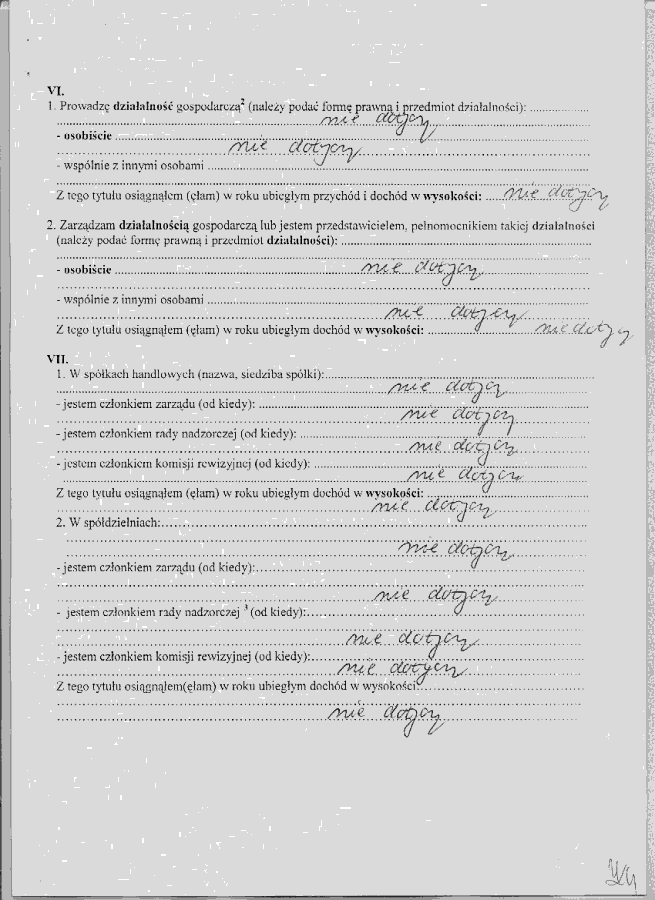 VI.
1. Prowadzę działalność gospodarczą² (należy podać formę prawną i przedmiot działalności): ....................
nie dotyczy
- osobiście
nie dotyczy
- wspólnie z innymi osobami
Z tego tytułu osiągnąłem (ęłam) w roku ubiegłym przychód i dochód w wysokości: nie dotyczy
2. Zarządzam działalnością gospodarczą lub jestem przedstawicielem, pełnomocnikiem takiej działalności
(należy podać formę prawną i przedmiot działalności):
- osobiście nie dotyczy
- wspólnie z innymi osobami
nie dotyczy
Z tego tytułu osiągnąłem (ęłam) w roku ubiegłym dochód w wysokości: nie dotyczy
VII.
1. W spółkach handlowych (nazwa, siedziba spółki):
nie dotyczy
- jestem członkiem zarządu (od kiedy):
nie dotyczy
- jestem członkiem rady nadzorczej (od kiedy):
nie dotyczy
- jestem członkiem komisji rewizyjnej (od kiedy):
nie dotyczy
Z tego tytułu osiągnąłem (ęłam) w roku ubiegłym dochód w wysokości:
nie dotyczy
2. W spółdzielniach:
nie dotyczy
- jestem członkiem zarządu (od kiedy):
nie dotyczy
- jestem członkiem rady nadzorczej ³ (od kiedy):
nie dotyczy
- jestem członkiem komisji rewizyjnej (od kiedy):
nie dotyczy
Z tego tytułu osiągnąłem(ęłam) w roku ubiegłym dochód w wysokości:
nie dotyczy